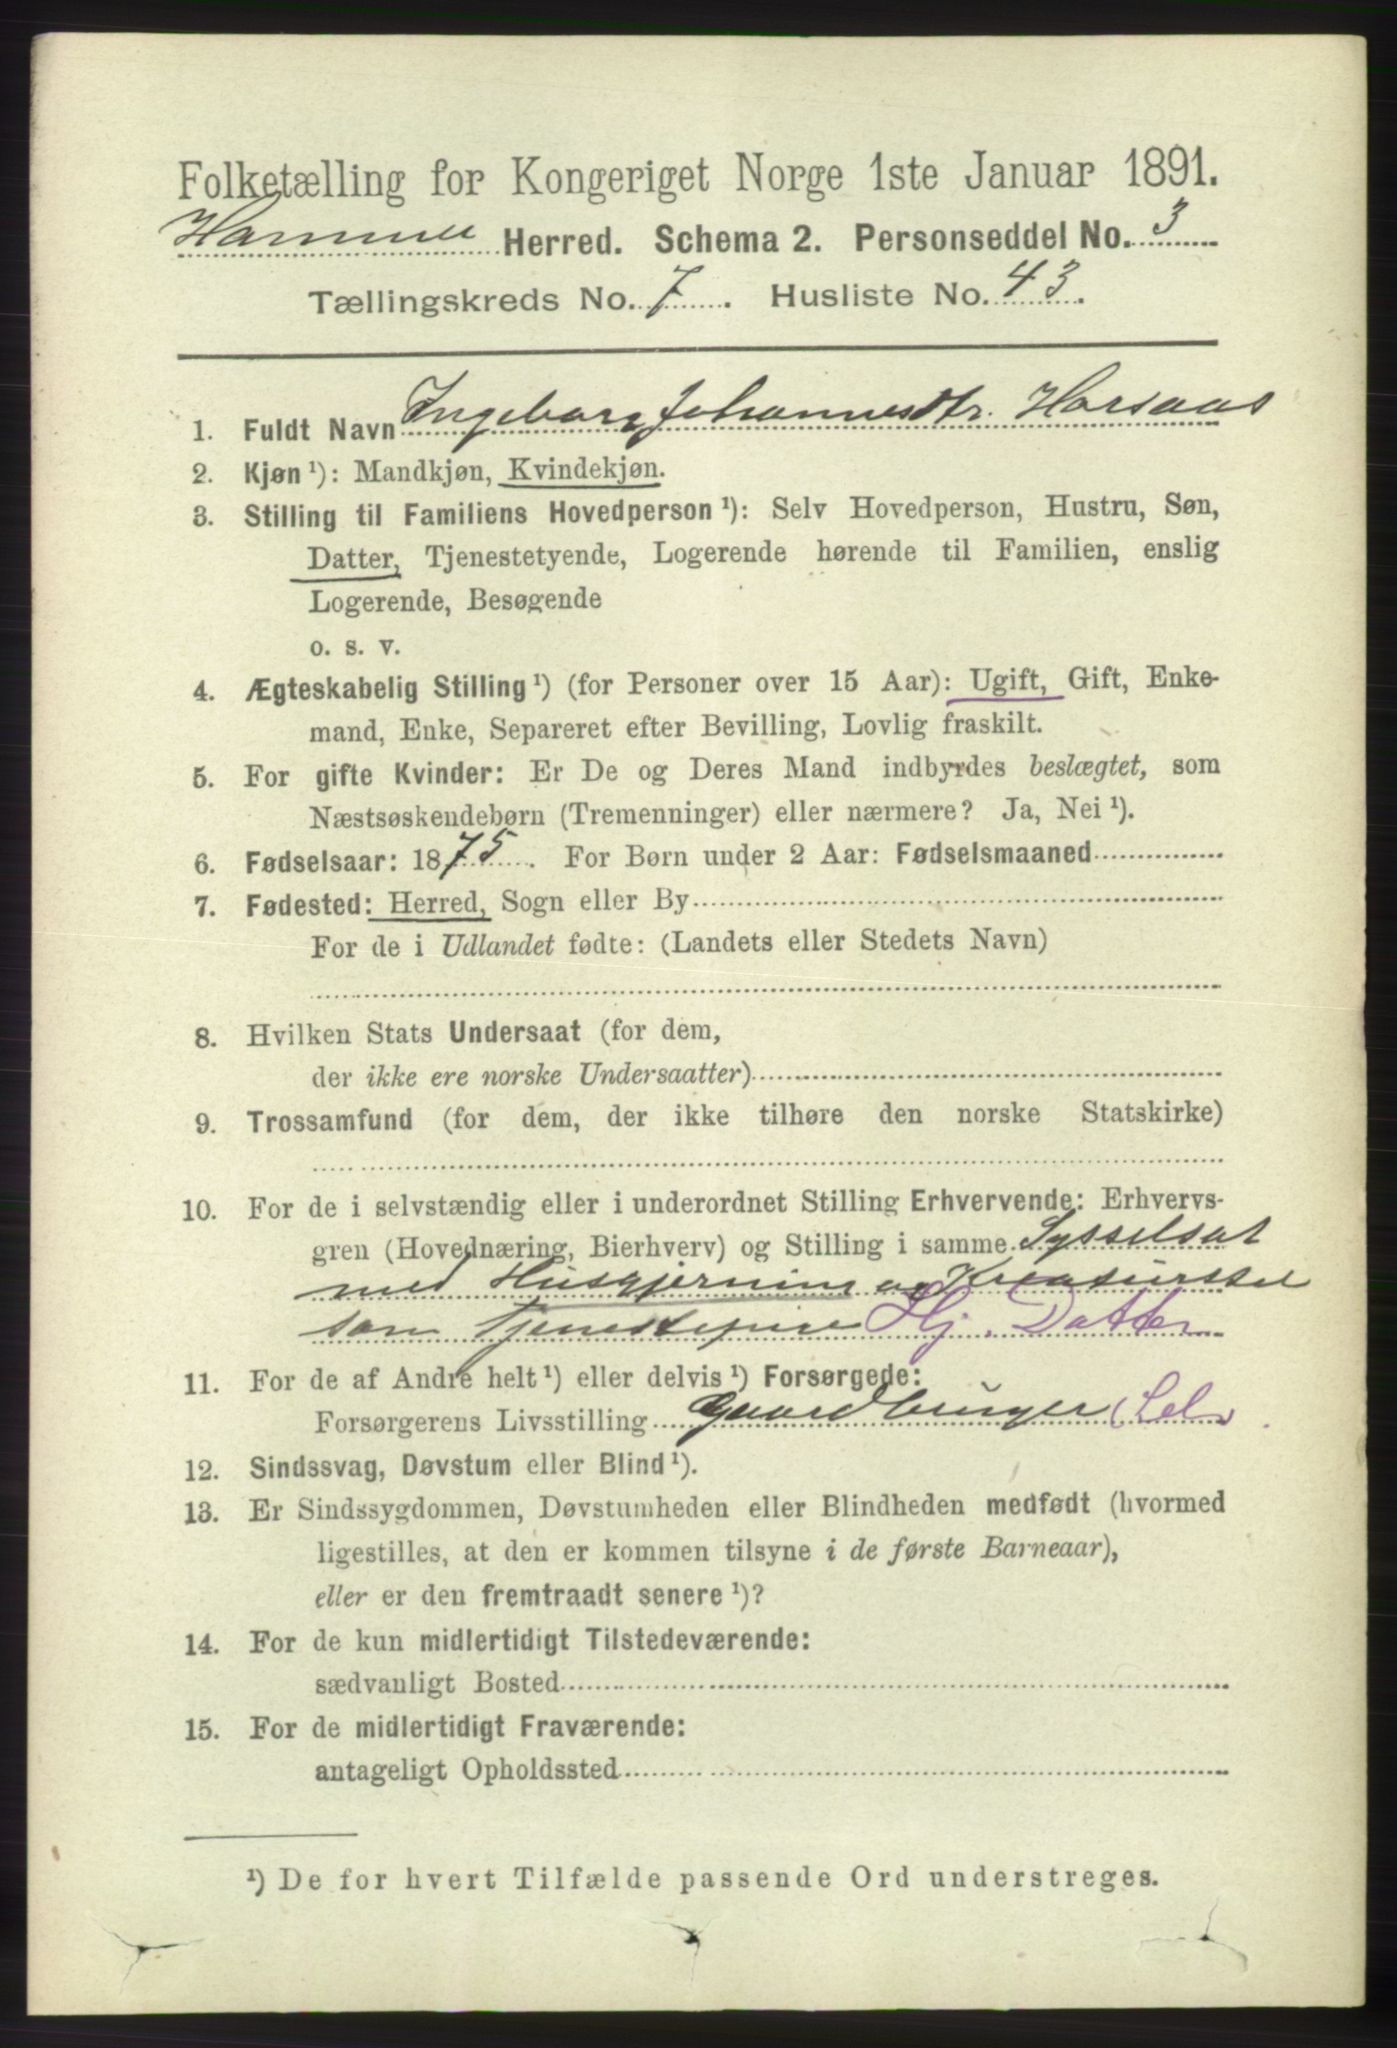 Folketælling for Kongeriget Norge 1ste Januar 1891.
Hammer Herred. Schema 2. Personseddel No. 3
Tællingskreds No. 7. Husliste No. 43.
1. Fuldt Navn Ingeborg Johannesdtr. Horsaas
2. Kjøn¹): Mandkjøn, Kvindekjøn.
3. Stilling til Familiens Hovedperson¹): Selv Hovedperson, Hustru, Søn,
Datter, Tjenestetyende, Logerende hørende til Familien, enslig
Logerende, Besøgende
o. s. v.
4. Ægteskabelig Stilling¹) (for Personer over 15 Aar): Ugift, Gift, Enke-
mand, Enke, Separeret efter Bevilling, Lovlig fraskilt.
5. For gifte Kvinder: Er De og Deres Mand indbyrdes beslægtet, som
Næstsøskendebørn (Tremenninger) eller nærmere? Ja, Nei¹).
6. Fødselsaar: 1875. For Børn under 2 Aar: Fødselsmaaned
7. Fødested: Herred, Sogn eller By
For de i Udlandet fødte: (Landets eller Stedets Navn)
8. Hvilken Stats Undersaat (for dem,
der ikke ere norske Undersaatter)
9. Trossamfund (for dem, der ikke tilhøre den norske Statskirke)
10. For de i selvstændig eller i underordnet Stilling Erhvervende: Erhvervs-
gren (Hovednæring, Bierhverv) og Stilling i samme Sysselsat
med Husgjerning og Kreaturstel
som Tjenestepige Hj. Datter
11. For de af Andre helt¹) eller delvis¹) Forsørgede:
Forsørgerens Livsstilling Gaardbruger (Sel
12. Sindssvag, Døvstum eller Blind¹).
13. Er Sindssygdommen, Døvstumheden eller Blindheden medfødt (hvormed
ligestilles, at den er kommen tilsyne i de første Barneaar),
eller er den fremtraadt senere¹)?
14. For de kun midlertidigt Tilstedeværende:
sædvanligt Bosted
15. For de midlertidigt Fraværende:
antageligt Opholdssted
¹) De for hvert Tilfælde passende Ord understreges.